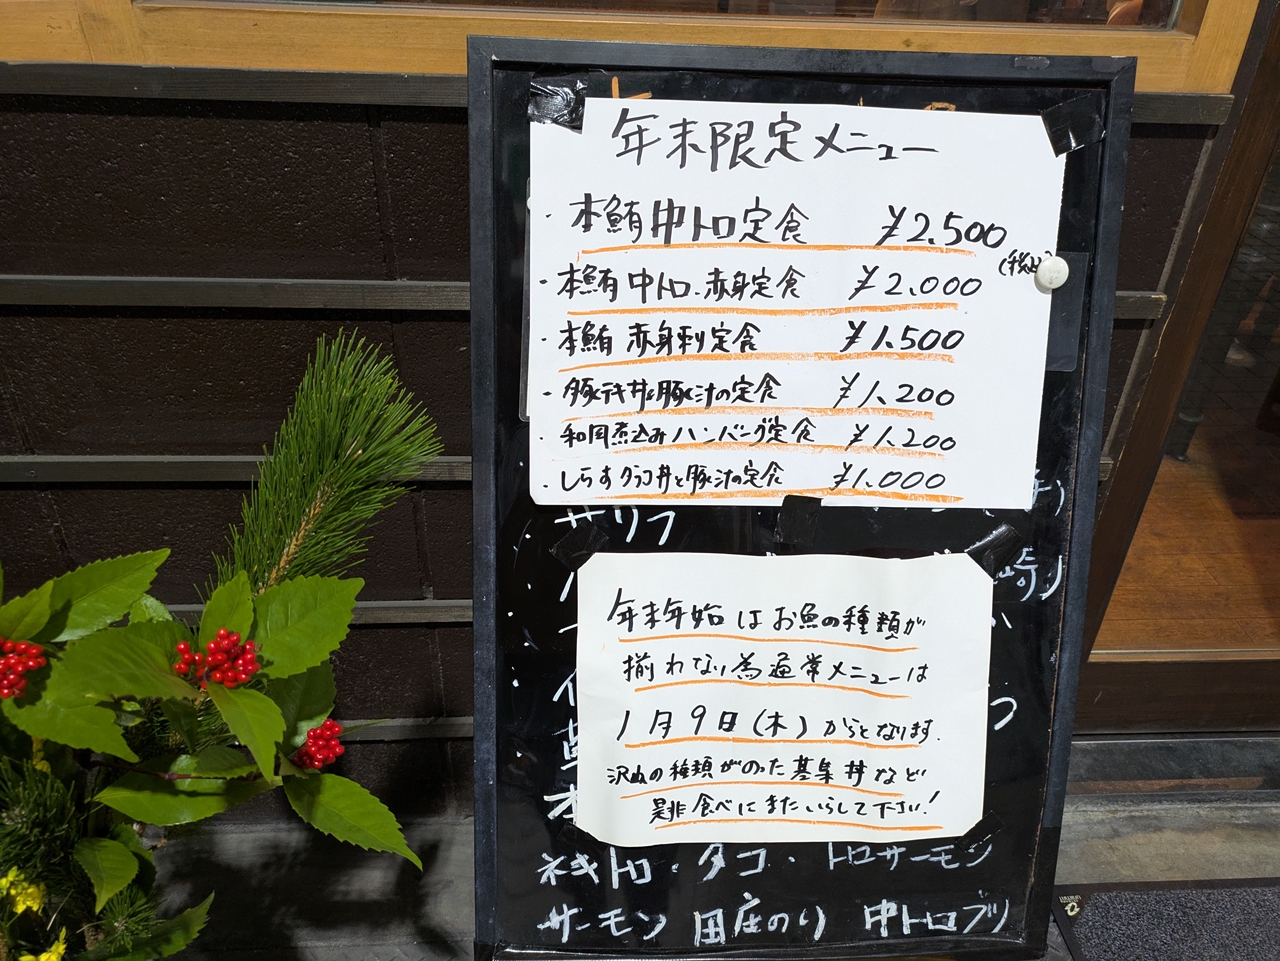 年末限定メニュー
・本鮪中トロ定食 ¥2.500
・本鮪中トロ、赤身定食 ¥2.000
・本鮪 赤身刺定食 ¥1.500
・豚テキ丼と豚汁の定食 ¥1.200
・和風煮込みハンバーグ定食 ¥1.200
・しらすイクラ丼と豚汁の定食 ¥1.000
サリフ
崎)
年末年始はお魚の種類が
揃わない為通常メニューは
1月9日(木)からとなります.
沢山の種類がのった 丼など
是非食べにまたいらして下さい!
ネギトロ・タコ・トロサーモン
サーモン 国産のり 中トロブツ